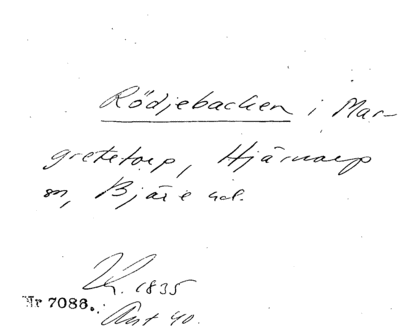 Rödjebacken i Mar-
gretetorp, Hjärnarp
sn, Bjäre hd.
1835
Nr 7086.
Ant 40.